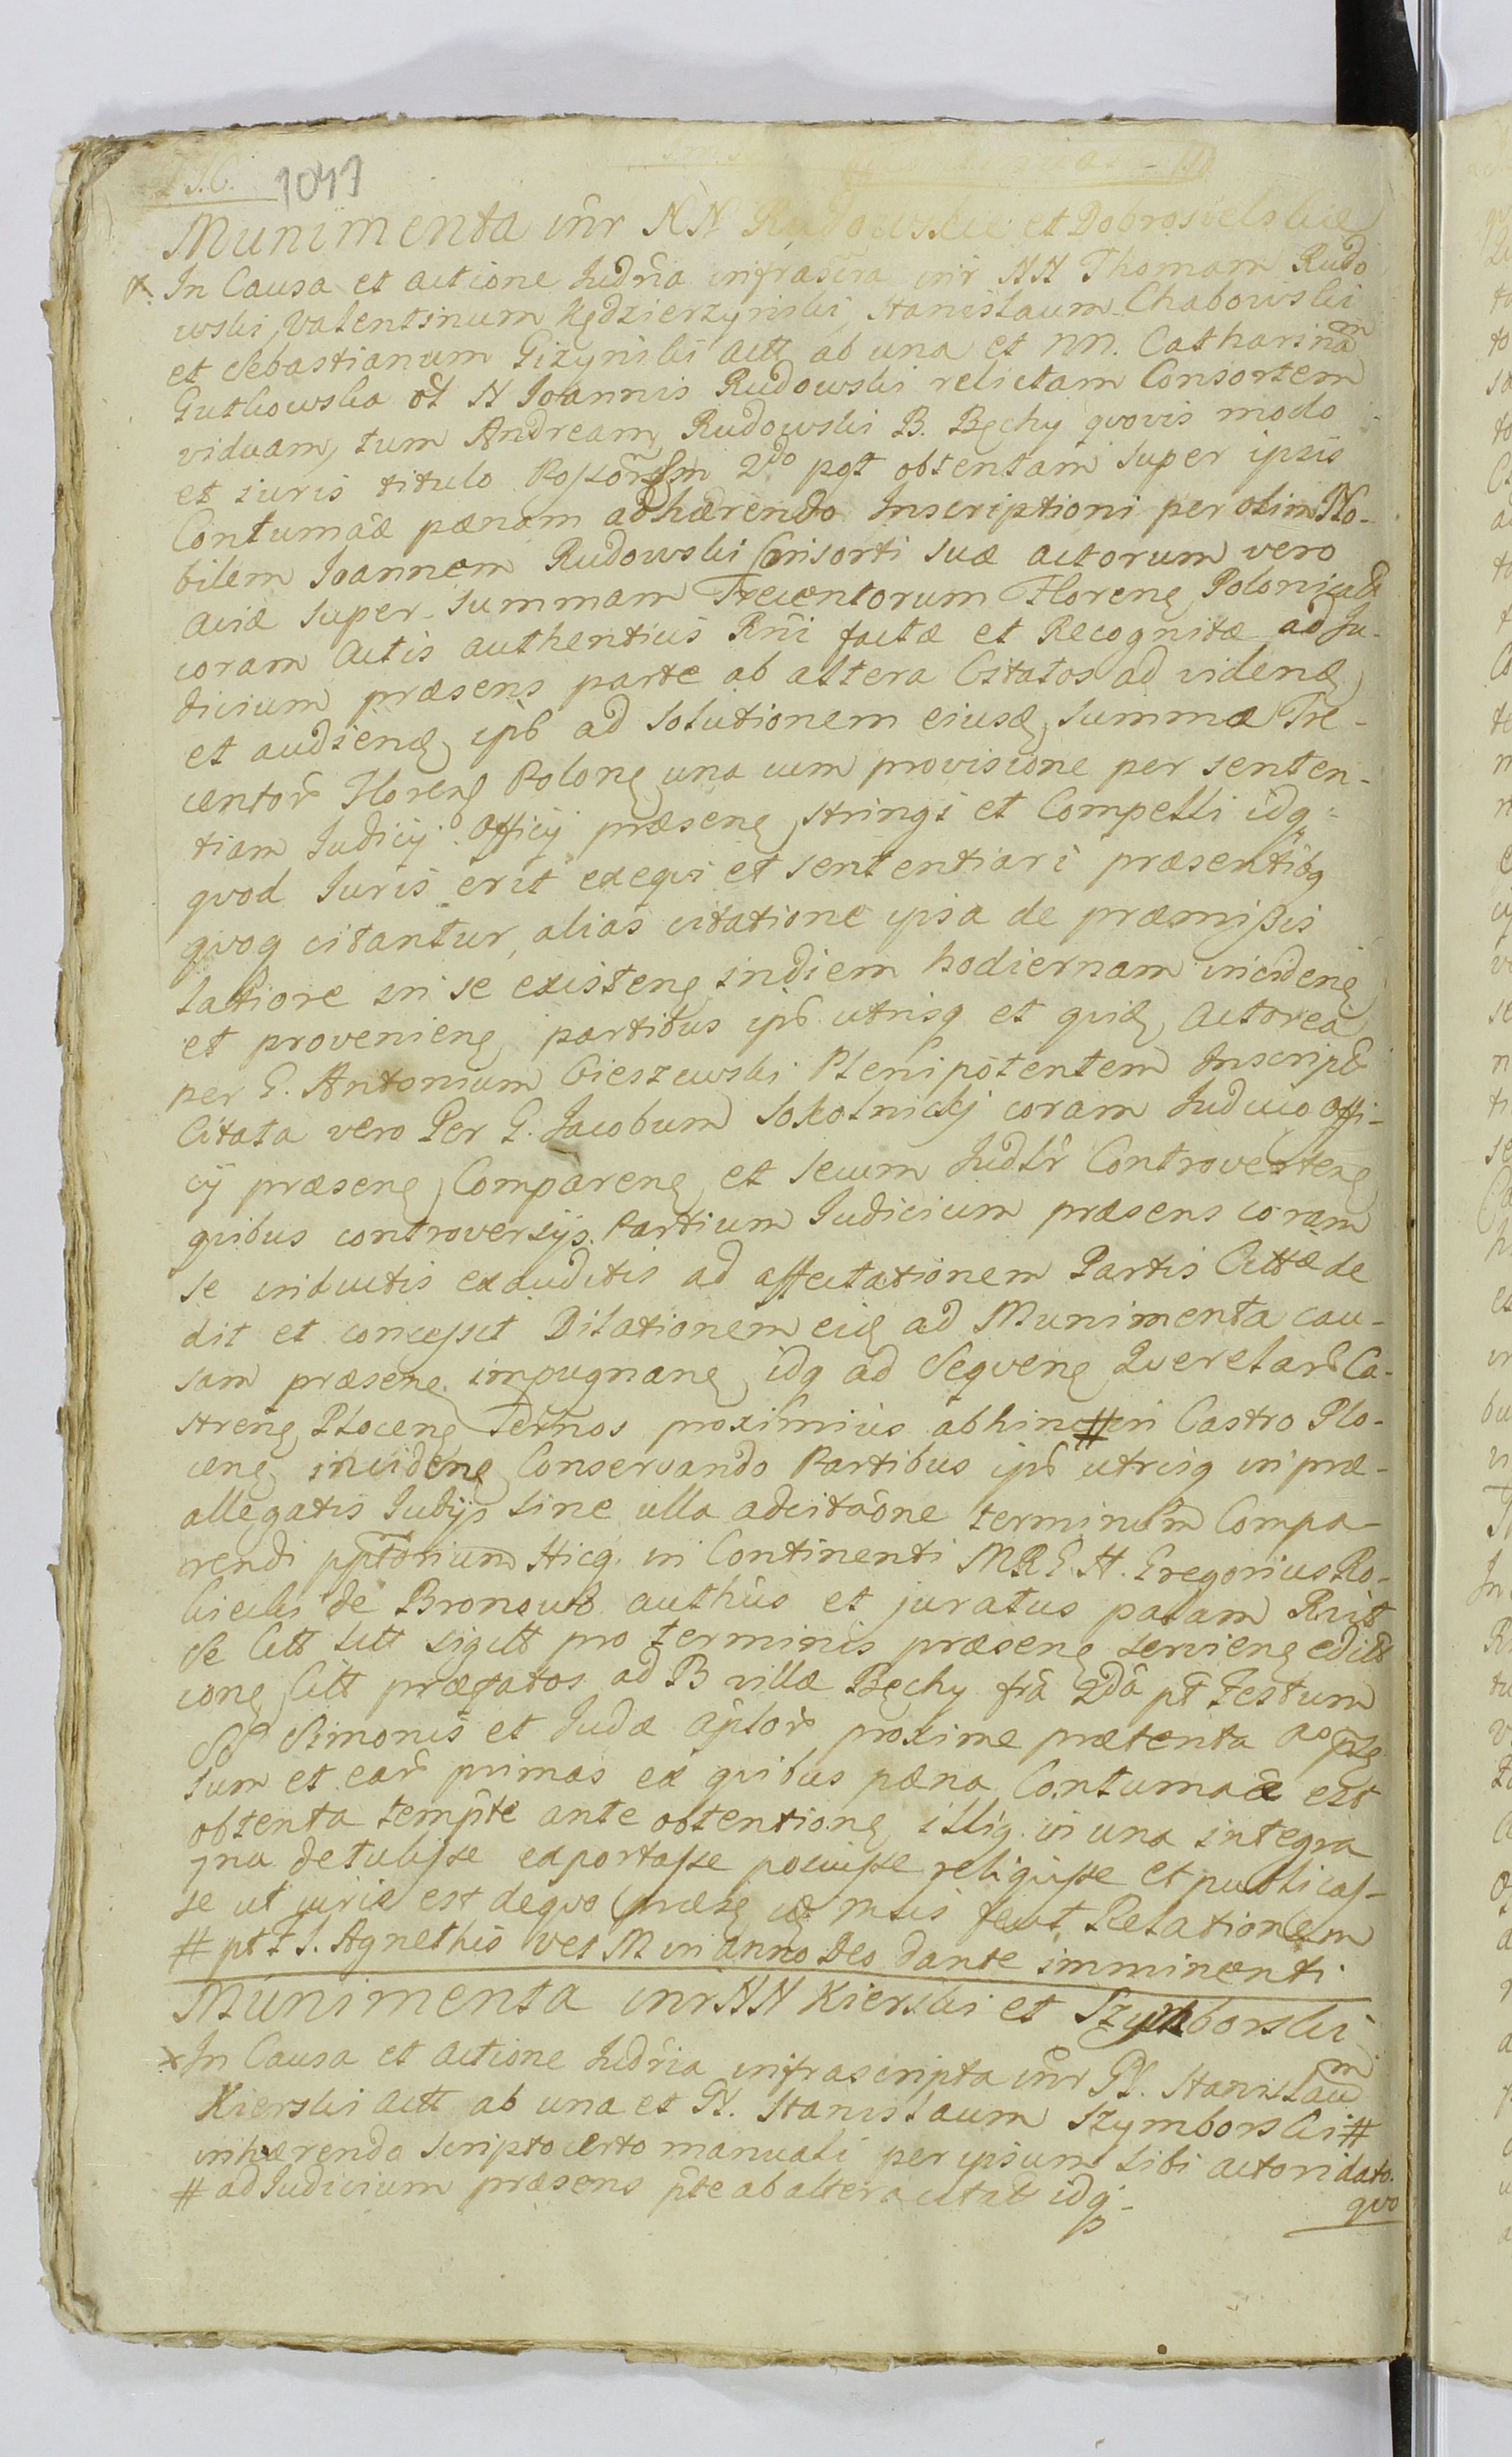 J.C. 1047
Munimenta inr NN Rudowskie et Dobrosielskie
In Causa et actione Judria infrascra inr NN Thomam Rudo
wski, Valentinum Kędzierzynski, Stanislaum Chabowski
et Sebastianum Gizynski actt ab una et nn. Catharinam
Gutkowska ol N Joannis Rudowski relictam Consortem
viduam, tum Andream Rudowski B. Bęchy qvovis modo
et iuris titulo 2do pgt obtentam super ipsis
Contumaæ pænam adhærendo Inscriptioni per olim No-
bilem Joannem Rudowski Consorti suæ actorum vero
aviæ super summam Trecentorum Floreng Polonical
coram Actis authenticis Rni factæ et Recognitæ ad Ju-
dicium præsens parte ab altera Citatos ad videnđ
et audienđ ipb ad solutionem eiusđ summæ Tre-
centor Floreng Polong una cum provisione per senten-
tiam Judicij Officij præseng stringi et Compelli idq
qvod Juris erit exeqvi et sententiari præsentibg
qvog citantur, alias citatione ipsa de præmißis
latiore in se existeng indiem hodiernam incideng
et provenieng partibus ipb utrisq et qvid Actorea
per G. Antonium Cieszewski Plenipotentem Inscript
Citata vero Per G. Jacobum Sokolnickj coram Judicio Offi-
cij præseng Compareng et secum Judlr Controverteng
qvibus controversijs Partium Judicium præsens coram
se inductis exauditis ad affectationem Partis Cittæ de
dit et concessit Dilationem eid ad Munimenta cau-
sam præseng impugnang idq ad Seqveng Qverelar Ca-
streng Ploceng Ternos proximius abhinc # in Castro Plo-
ceng incideng Conservando Partibus ipb utrisq in præ-
allegatis Judijs sine ulla adcitaone terminum Compa-
rendi pptorium Hicq in Continenti MRG. H. Gregorius Ro-
kicki de Bronowo authus et juratus palam Rvit
Se Citt Litt sigilt pro terminis præseng servieng edit
iong Citt præfatos ad B villæ Bęchy fra 2da pt Festum
SS Simonis et Judæ Aplor proxime præterita
sum et ear primas ex qvibus pæna Contumaæ est
obtenta tempte ante obtentiong illiq in una integra
7na detulisse exportasse posuisse reliqvisse et publicas-
se ut iuris est deqvo præsg mtis fecit Relationem
# pt F S. Agnethis Ves M in anno Deo dante imminenti
Munimenta inr NN Kierski et Szymborski
In Causa et actione Judria infrascripta inr GN. Stanislaum
Kierski actt ab una et N. Stanislaum Szymborski #
inhærendo scripto certo manuali per ipsum sibi actori dato.
# ad Judicium præsens pte ab altera citats idq
qvo